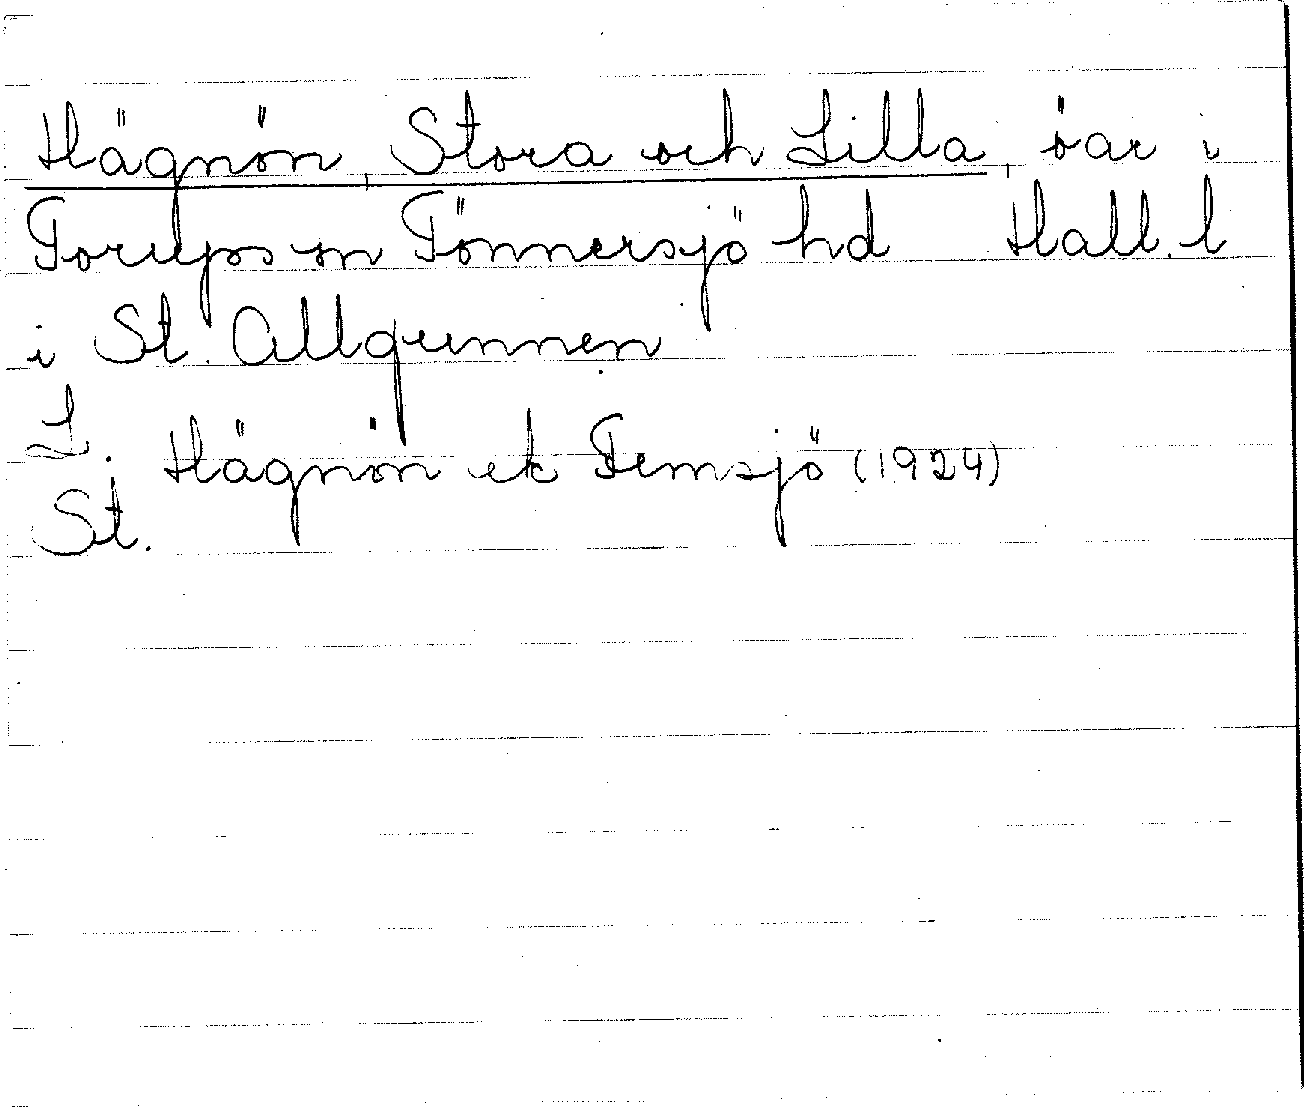 Hägnön, Stora och Lilla, öar i
Torups sn Tönnersjö hd Hall. l
i St. Allgunnen
L.
Hägnön ek Femsjö (1924)
St.